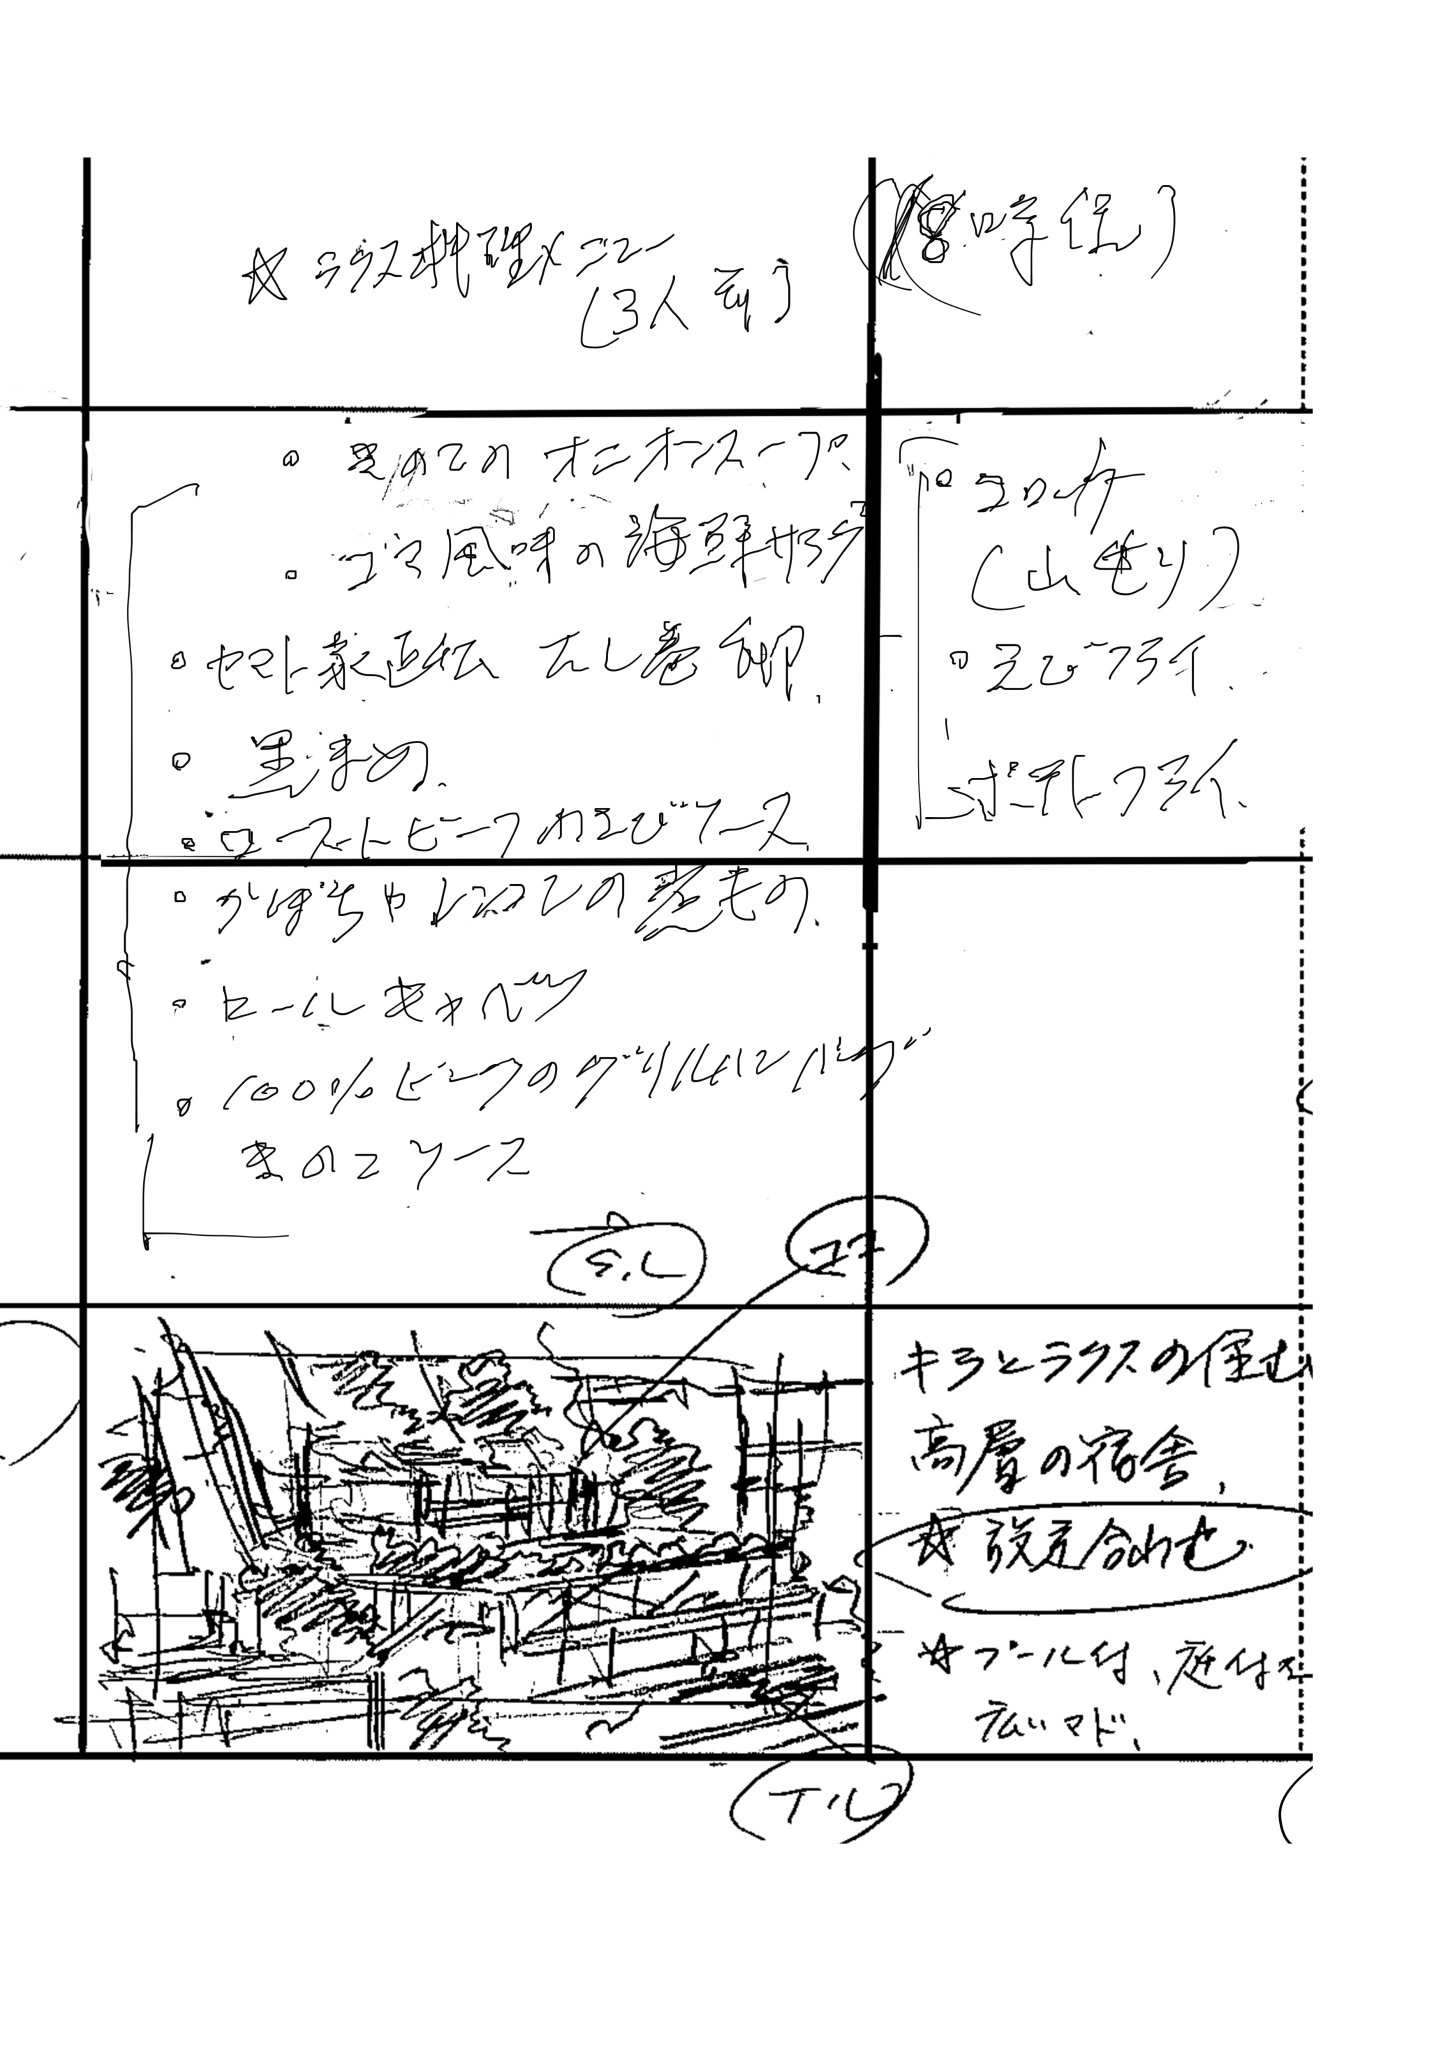 ☆ ラクス料理メニュー
(3人前)
(8時係)
。きのこのオニオンスープ、
。ゴマ風味の海鮮サラダ
。ヤマト家直伝 だし巻き卵、
。黒まめ、
。ローストビーフわさびソース、
。かぼちゃレンコンの煮もの、
。ロールキャベツ
。100%ビーフのグリルハンバーグ
きのこソース
。コロッケ
(山もり)
。えびフライ、
ポテトフライ、
キラとラクスの住む
高層の宿舎、
☆ 設定合わせ
☆ プール付、庭付き
広いマド、